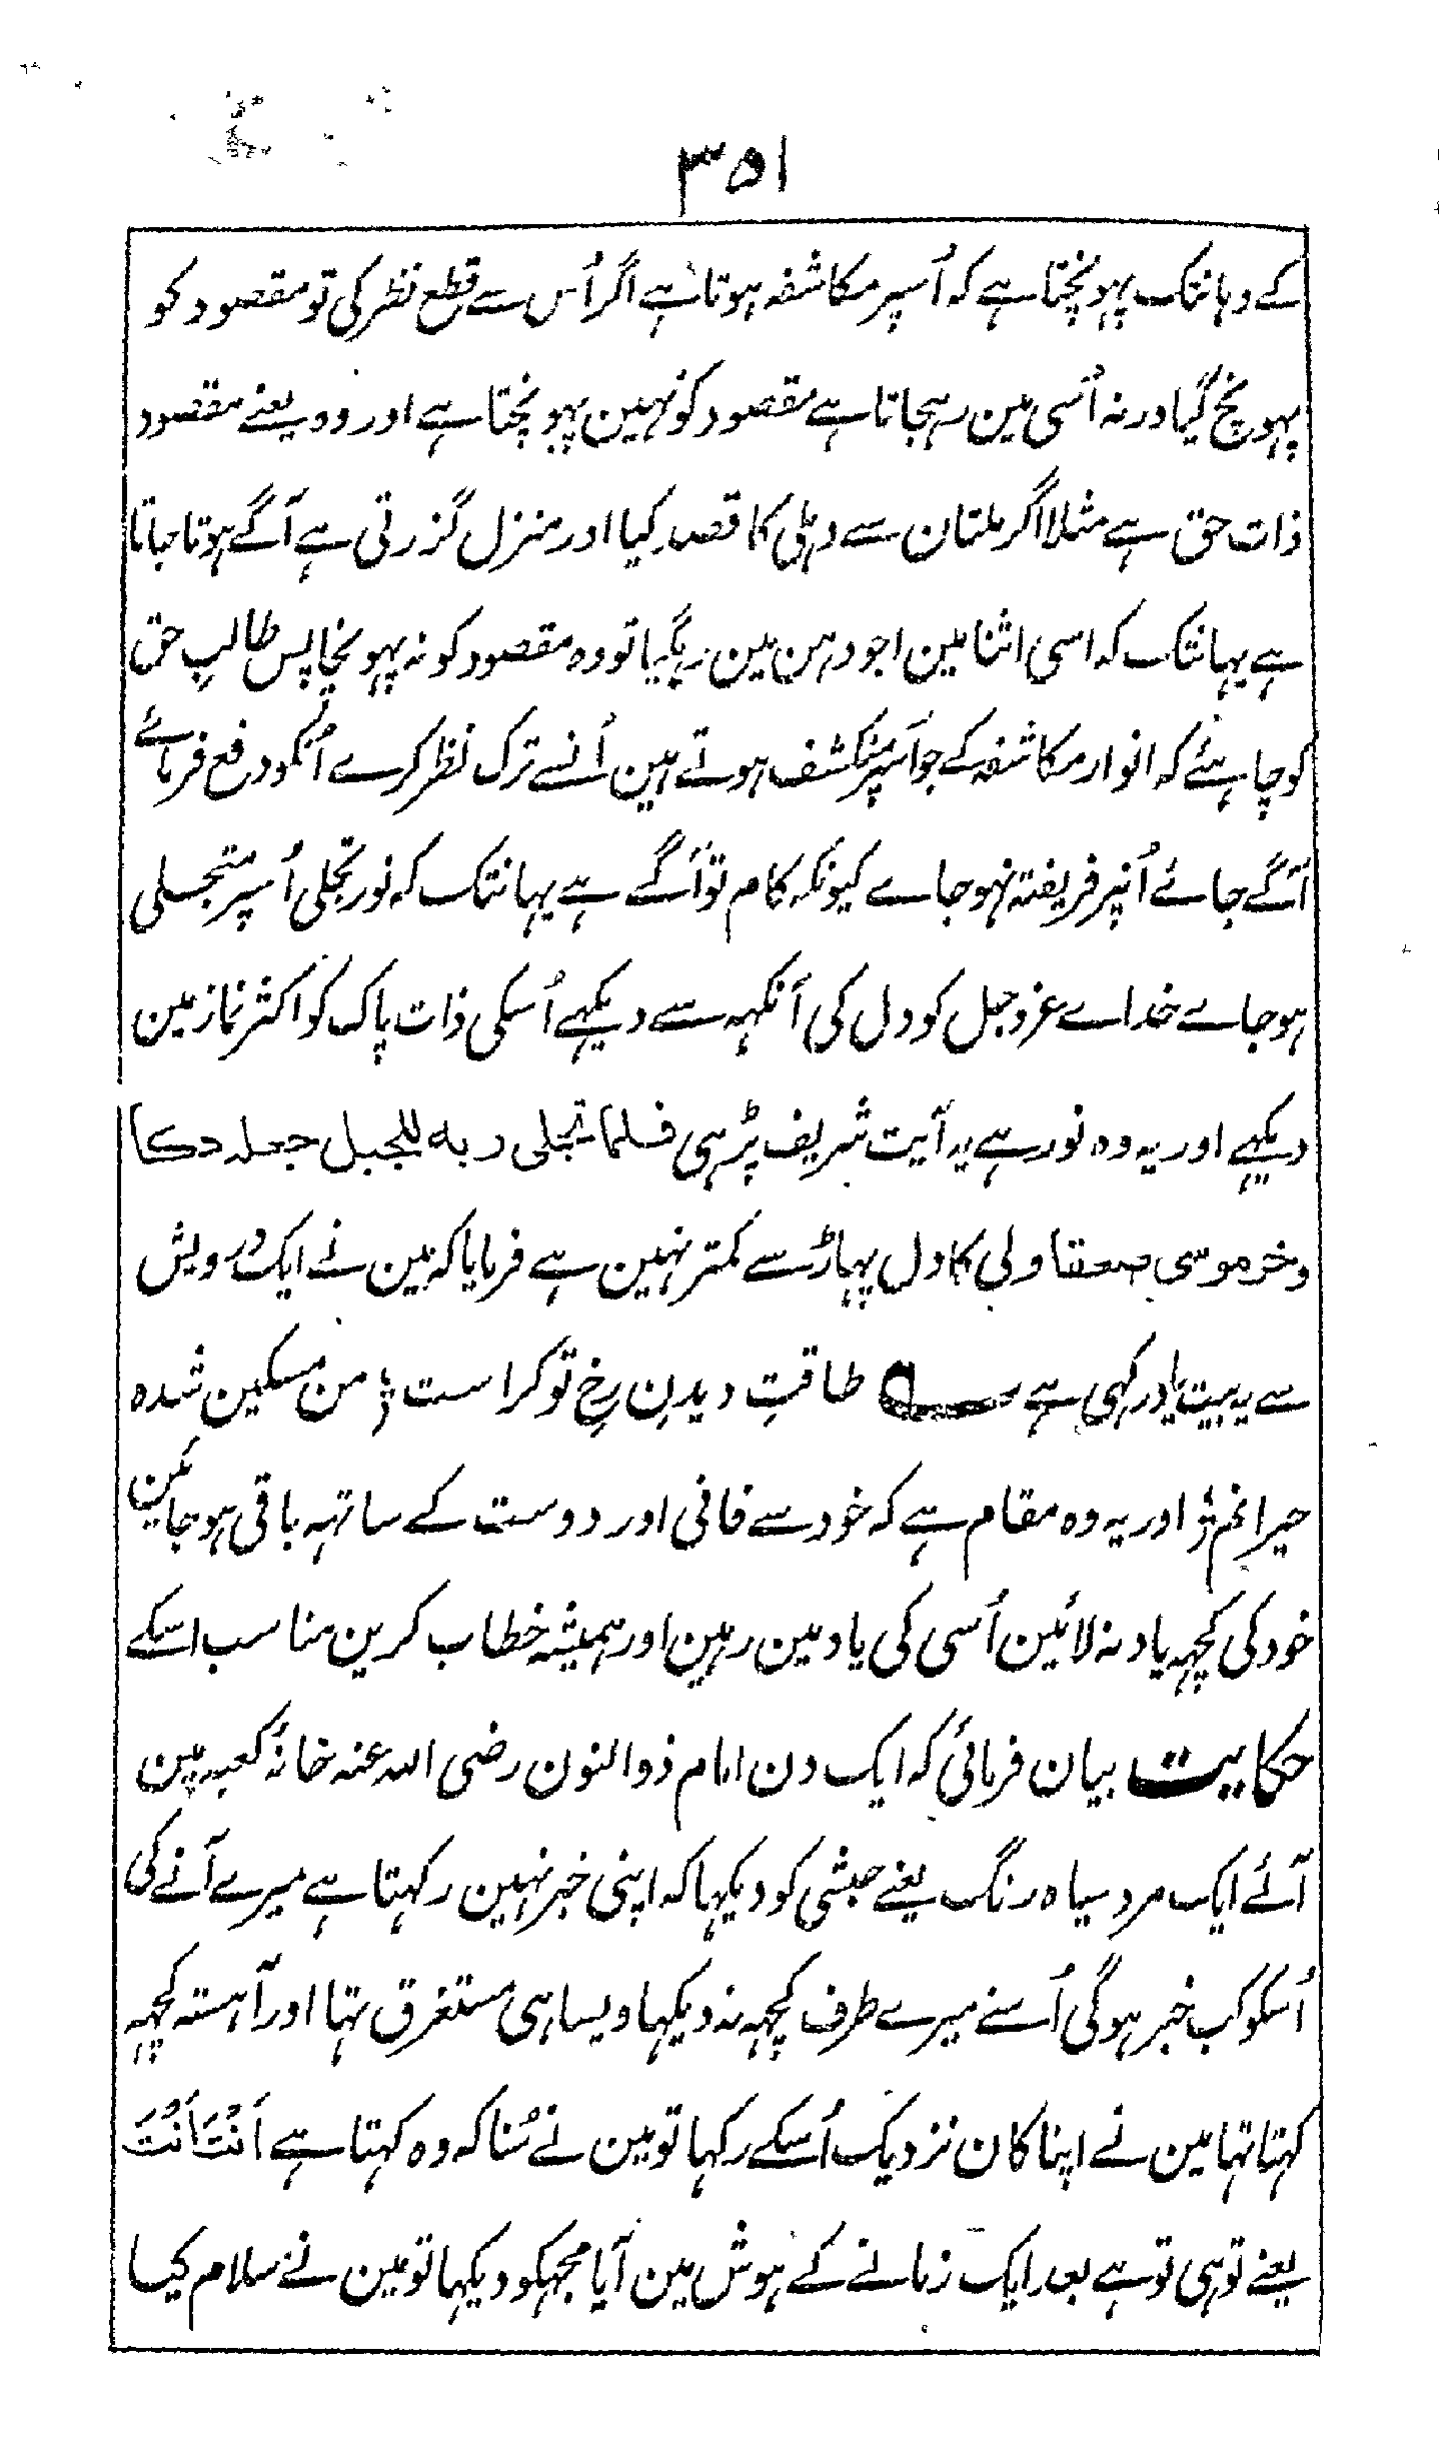 ۳۵۱
کے وہانتک پہونچتا ہے کہ اُسپر مکاشفہ ہوتا ہے اگر اُس سے قطع نظر کی تو مقصود کو
پہونچ گیا ورنہ اُسی مین رہجاتا ہے مقصود کو نہین پہونچتا ہے اور وہ یعنے مقصود
ذات حق ہے مثلا اگر ملتان سے دہلی کا قصد کیا اور منزل گزرتی ہے آگے ہوتا جاتا
ہے یہانتک کہ اسی اثنا مین اجودہن مین رہگیا تو وہ مقصود کو نہ پہونچا پس طالبِ حق
کو چاہئے کہ انوار مکاشفہ کے جو اُسپر منکشف ہوتے ہین اُنسے ترک نظر کرے اُنکو دفع فرمائے
آگے جائے اُنپر فریفتہ نہو جاے کیونکہ کام تو آگے ہے یہانتک کہ نور تجلی اُسپر متجلی
ہو جاے خداے عزوجل کو دل کی آنکہہ سے دیکہے اُسکی ذات پاک کو اکثر نماز مین
دیکہے اور یہ وہ نور ہے یہ آیت شریف پڑہی فلما تجلی ربه للجبل جعله دکا
وخر موسی صعقا ولی کا دل پہاڑ سے کمتر نہین ہے فرمایا کہ مین نے ایک درویش
سے یہ بیت یاد رکہی ہے ؎ طاقتِ دیدنِ رخِ تو کراست ؛ من مسکین شدہ
حیرانم ؛ اور یہ وہ مقام ہے کہ خود سے فانی اور دوست کے ساتہہ باقی ہو جائین
خود کی کچہہ یاد نہ لائین اُسی کی یاد مین رہین اور ہمیشہ خطاب کرین مناسب اسکے
حکایت بیان فرمائی کہ ایک دن امام ذوالنون رضی اللہ عنہ خانۂ کعبہ مین
آئے ایک مرد سیاہ رنگ یعنے حبشی کو دیکہا کہ اپنی خبر نہین رکہتا ہے میرے آنے کی
اُسکو کب خبر ہوگی اُسنے میرے طرف کچہہ نہ دیکہا ویسا ہی مستغرق تہا اور آہستہ کچہہ
کہتا تہا مین نے اپنا کان نزدیک اُسکے رکہا تو مین نے سُنا کہ وہ کہتا ہے اَنْتَ اَنْتَ
یعنے تو ہی تو ہے بعد ایک زمانے کے ہوش مین آیا مجہکو دیکہا تو مین نے سلام کیا